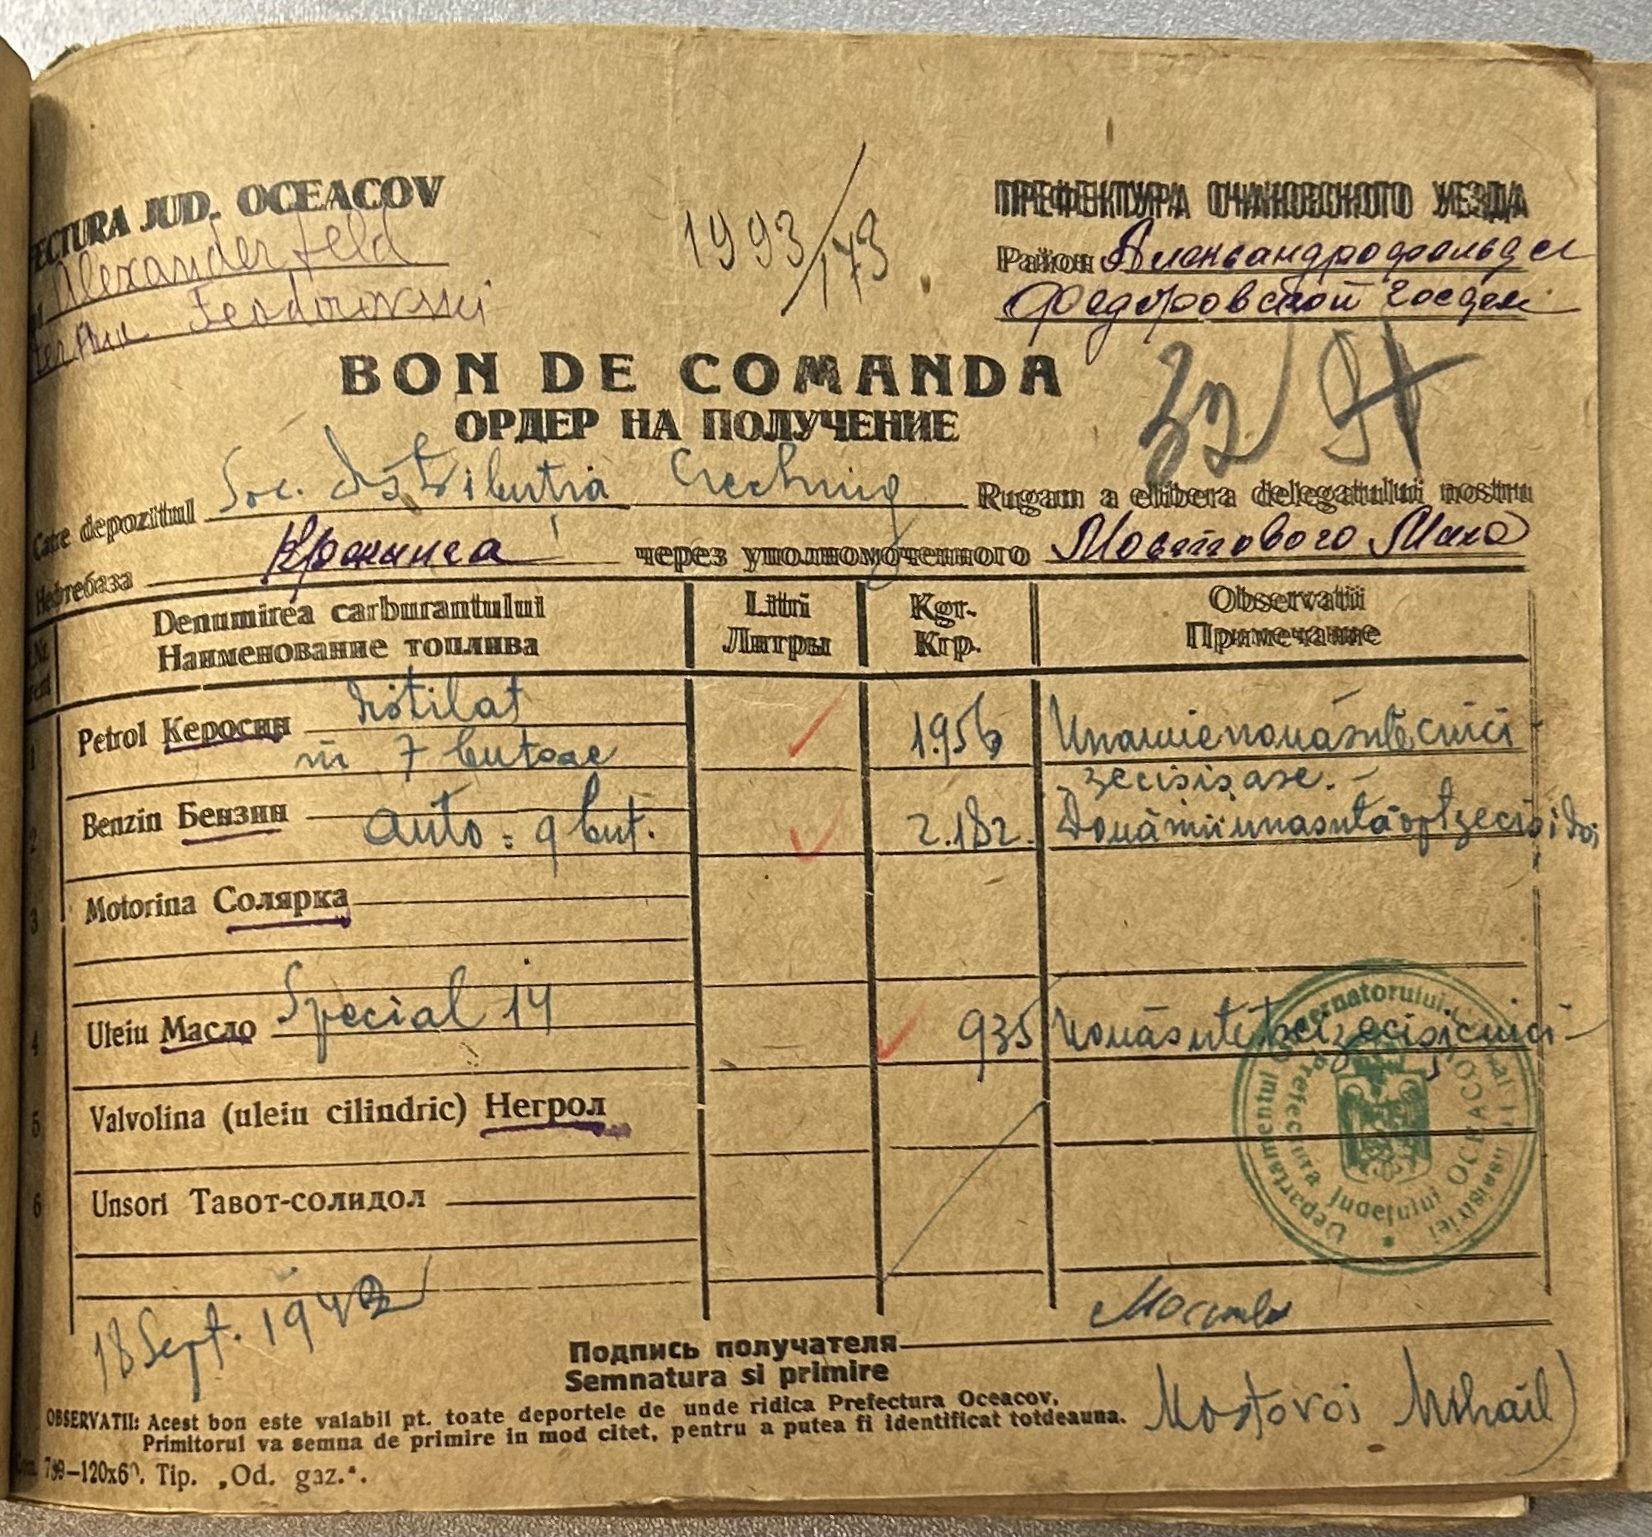 ECTURA JUD. OCEACOV
Alexanderfeld
Feodorovski
1993/173
ПРЕФЕКТУРА ОЧАКОВСКОГО УЕЗДА
Район Александрофельдс
Федоровской госдел
BON DE COMANDA
ОРДЕР НА ПОЛУЧЕНИЕ
32
Catre depozitul Soc. Distribuția Rugam a elibera delegatului nostru
Нефтебаза через уполномоченного Мостового Миха
Denumirea carburantului Litri Kgr. Observatii
Наименование топлива Литры Кгр. Примечание
1 Petrol Керосин distilat
în 7 butoae 1.956 Unamienouăsutecinci-
zecișișase.-
2 Benzin Бензин auto = 9 but. 2.182. Douămiiunasutăoptzecișidoi
3 Motorina Солярка
4 Uleiu Масло Special 14 935 Nouăsutetreizecișicinci-
5 Valvolina (uleiu cilindric) Негрол
6 Unsori Тавот-солидол
Prefectura Județului OCEACOV
18 Sept. 1943
Подпись получателя
Semnatura si primire
Mostovoi Mihail)
OBSERVATII: Acest bon este valabil pt. toate deportele de unde ridica Prefectura Oceacov.
Primitorul va semna de primire in mod citet, pentru a putea fi identificat totdeauna.
789—120x60. Tip. „Od. gaz.“.